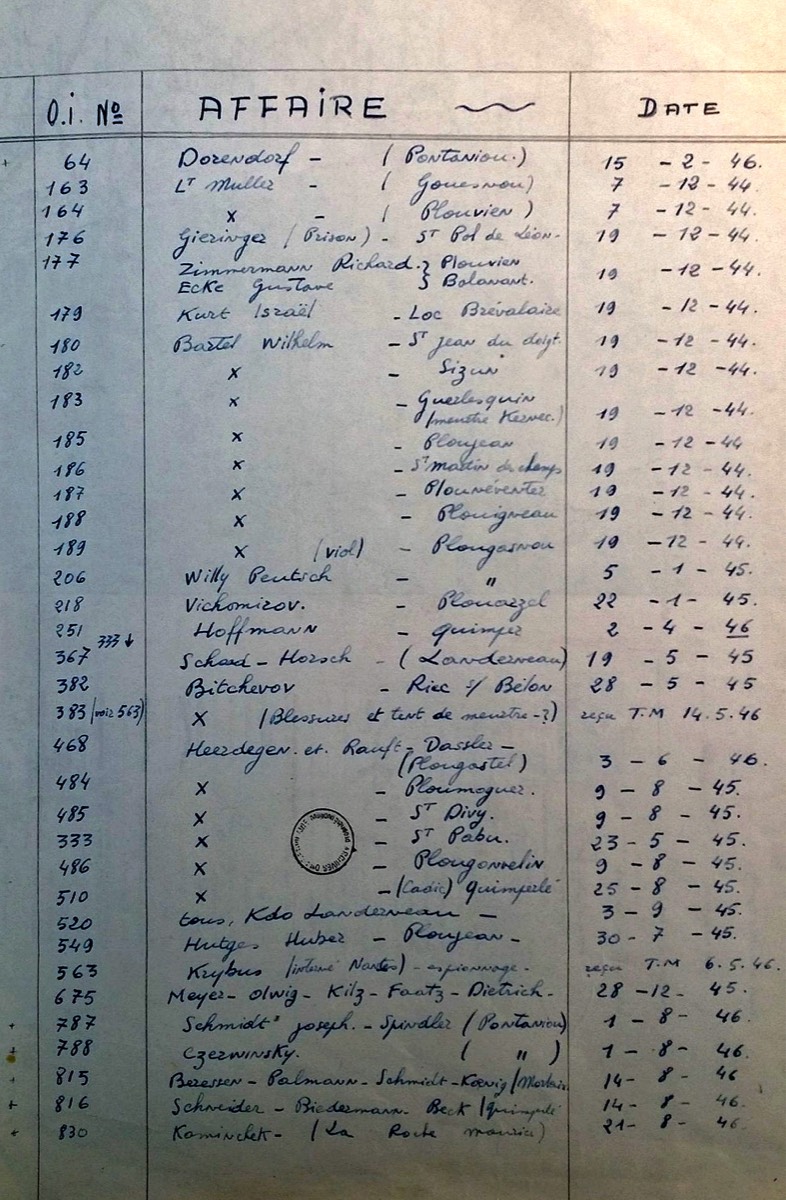 O.I. Nº AFFAIRE DATE
+ 64 Dorendorf - ( Pontaniou.) 15 - 2 - 46.
163 Lt Muller - ( Gouesnou) 7 - 12 - 44.
164 x - ( Plouvien ) 7 - 12 - 44.
176 Gieringer (Prison) - St Pol de Léon. 19 - 12 - 44.
177 Zimmermann Richard. } Plouvien
Ecke Gustave } Bolanant. 19 - 12 - 44.
179 Kurt Israël - Loc Brévalaire 19 - 12 - 44.
180 Bartel Wilhelm - St Jean du doigt. 19 - 12 - 44.
182 x - Sizun 19 - 12 - 44.
183 x - Guerlesquin
(meurtre Kernec.) 19 - 12 - 44.
185 x - Ploujean 19 - 12 - 44
186 x - St martin des champs 19 - 12 - 44.
187 x - Plounéventer 19 - 12 - 44.
188 x - Plouigneau 19 - 12 - 44.
189 x (viol) - Plougasnou 19 - 12 - 44.
206 Willy Peutsch - " 5 - 1 - 45.
218 Vichomirov. - Plouarzel 22 - 1 - 45.
251 Hoffmann - quimper 2 - 4 - 46
333 ↓
367 Schad - Horsch - (Landerneau) 19 - 5 - 45
382 Bitchevov - Riec s/ Bélon 28 - 5 - 45
383 (voir 563) X (Blessures et tent de meurtre - ?) reçu T.M 14.5.46
468 Heerdegen. et. Rauft - Dassler -
(Plougastel) 3 - 6 - 46.
484 X - Ploumoguer. 9 - 8 - 45.
485 X - St Divy. 9 - 8 - 45.
333 X - St Pabu. 23 - 5 - 45.
486 X - Plougonvelin 9 - 8 - 45.
510 X - (Cadic) Quimperlé 25 - 8 - 45.
520 tous, Kdo Landerneau - 3 - 9 - 45.
549 Hutges Huber - Ploujean - 30 - 7 - 45.
563 Krybus (interné Nantes) - espionnage - reçu T.M 6.5.46.
675 Meyer - Olwig - Kilz - Faatz - Dietrich - 28 - 12 - 45.
+ 787 Schmidt Joseph. - Spindler (Pontaniou) 1 - 8 - 46
+ 788 Czerwinsky. ( " ) 1 - 8 - 46.
+ 815 Beressen - Palmann - Schmidt - Kœnig (Morlaix 14 - 8 - 46
+ 816 Schneider - Biedermann - Beck (quimperlé 14 - 8 - 46.
+ 830 Kominchek - (La Roche maurice) 21 - 8 - 46